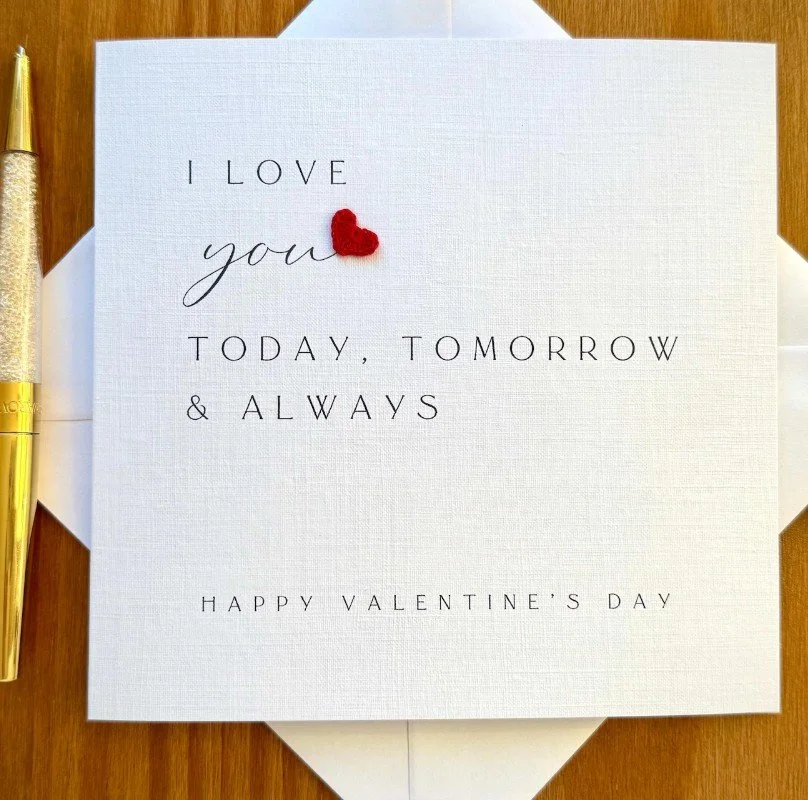 I LOVE
you
TODAY, TOMORROW
& ALWAYS
HAPPY VALENTINE'S DAY